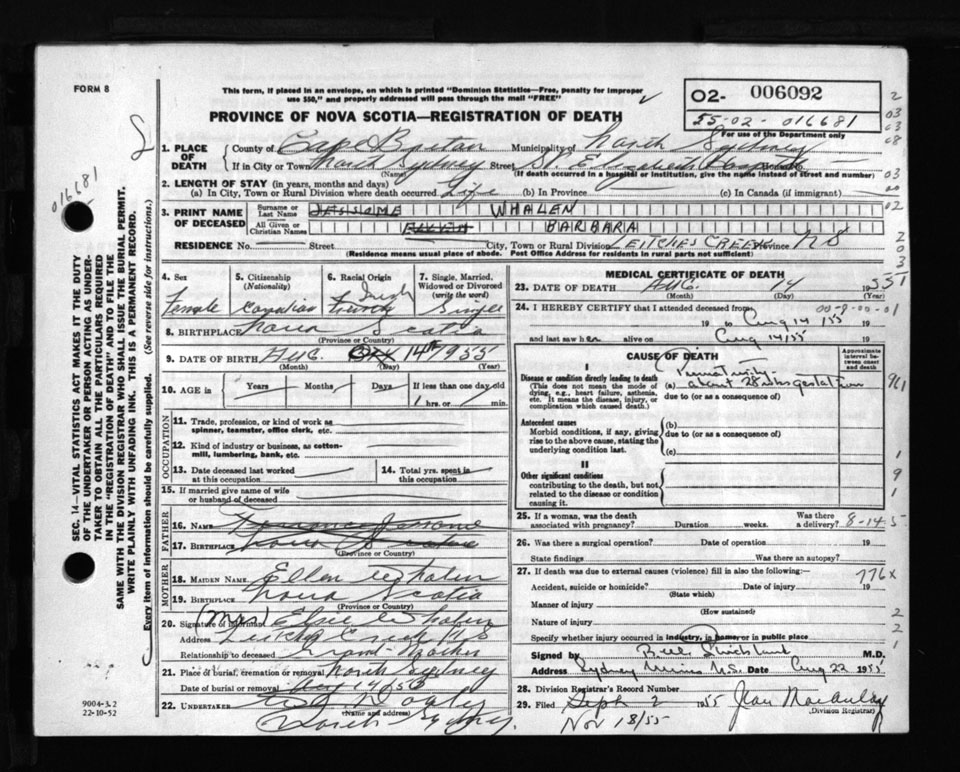 FORM 8
This form, if placed in an envelope, on which is printed "Dominion Statistics—Free, penalty for improper
use $50," and properly addressed will pass through the mail "FREE"
PROVINCE OF NOVA SCOTIA—REGISTRATION OF DEATH
O2- 006092
55-02-016681
For use of the Department only
016681
SEC. 14—VITAL STATISTICS ACT MAKES IT THE DUTY
OF THE UNDERTAKER OR PERSON ACTING AS UNDER-
TAKER TO OBTAIN ALL THE PARTICULARS REQUIRED
IN THE "REGISTRATION OF DEATH" AND TO FILE THE
SAME WITH THE DIVISION REGISTRAR WHO SHALL ISSUE THE BURIAL PERMIT.
WRITE PLAINLY WITH UNFADING INK. THIS IS A PERMANENT RECORD.
Every item of information should be carefully supplied. (See reverse side for instructions.)
1. PLACE OF DEATH
County of Cape Breton Municipality of North Sydney
If in City or Town North Sydney Street St. Elizabeth Hospital
(Name) (If death occurred in a hospital or institution, give the name instead of street and number)
2. LENGTH OF STAY (in years, months and days)
(a) In City, Town or Rural Division where death occurred Life (b) In Province (c) In Canada (if immigrant)
3. PRINT NAME OF DECEASED
Surname or Last Name JESSOME WHALEN
All Given or Christian Names ELLEN BARBARA
RESIDENCE No. Street City, Town or Rural Division LEITCHES CREEK Province NS
(Residence means usual place of abode. Post Office Address for residents in rural parts not sufficient)
4. Sex Female
5. Citizenship (Nationality) Canadian
6. Racial Origin Irish French
7. Single, Married, Widowed or Divorced (write the word) Single
8. BIRTHPLACE Nova Scotia
(Province or Country)
9. DATE OF BIRTH AUG. 14th 1955
(Month) (Day) (Year)
10. AGE in Years Months Days If less than one day old
1 hrs. or min.
OCCUPATION
11. Trade, profession, or kind of work as
spinner, teamster, office clerk, etc.
12. Kind of industry or business, as cotton-
mill, lumbering, bank, etc.
13. Date deceased last worked
at this occupation
14. Total yrs. spent in
this occupation
15. If married give name of wife
or husband of deceased
FATHER
16. NAME Jessome
17. BIRTHPLACE Nova Scotia
(Province or Country)
MOTHER
18. MAIDEN NAME Ellen Whalen
19. BIRTHPLACE Nova Scotia
(Province or Country)
20. Signature of informant (Mrs) Elsie Whalen
Address Leitches Creek NS
Relationship to deceased Grand-Mother
21. Place of burial, cremation or removal North Sydney
Date of burial or removal Aug 14/55
22. UNDERTAKER
(Name and address)
North Sydney.
9004-3.2
22-10-52
MEDICAL CERTIFICATE OF DEATH
23. DATE OF DEATH AUG. 14 1955
(Month) (Day) (Year)
24. I HEREBY CERTIFY that I attended deceased from
19 to Aug 14 1955
and last saw her alive on Aug 14/55 19
CAUSE OF DEATH
Approximate interval between onset and death
I
Disease or condition directly leading to death
(This does not mean the mode of
dying, e.g., heart failure, asthenia,
etc. It means the disease, injury, or
complication which caused death.)
Prematurity-
(a) about 28 wks gestation
due to (or as a consequence of)
Antecedent causes
Morbid conditions, if any, giving
rise to the above cause, stating the
underlying condition last.
(b)
due to (or as a consequence of)
(c)
II
Other significant conditions
contributing to the death, but not
related to the disease or condition
causing it.
25. If a woman, was the death
associated with pregnancy? Duration weeks. Was there
a delivery? 8-14-5
26. Was there a surgical operation? Date of operation 19
State findings Was there an autopsy?
27. If death was due to external causes (violence) fill in also the following:—
Accident, suicide or homicide? Date of injury 19
(State which)
776x
Manner of injury
(How sustained)
Nature of injury
Specify whether injury occurred in industry, in home, or in public place
Signed by Strickland M.D.
Address Sydney Mines N.S. Date Aug 22 1955
28. Division Registrar's Record Number
29. Filed Sept 2 1955 Jean MacAulay
(Division Registrar)
Nov 18/55